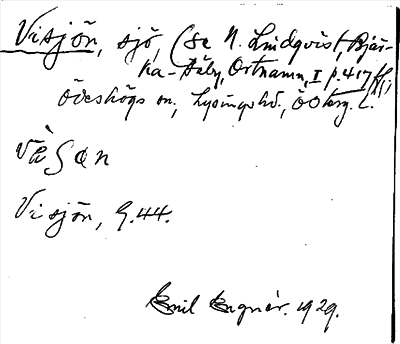 Visjön, sjö, (se N. Lindqvist, Bjär-
ka-Säby, Ortnamn, I p. 417 ff.;
Ödeshögs sn, Lysings hd, Österg. L.
Visjön, G.44.
Emil 1929.